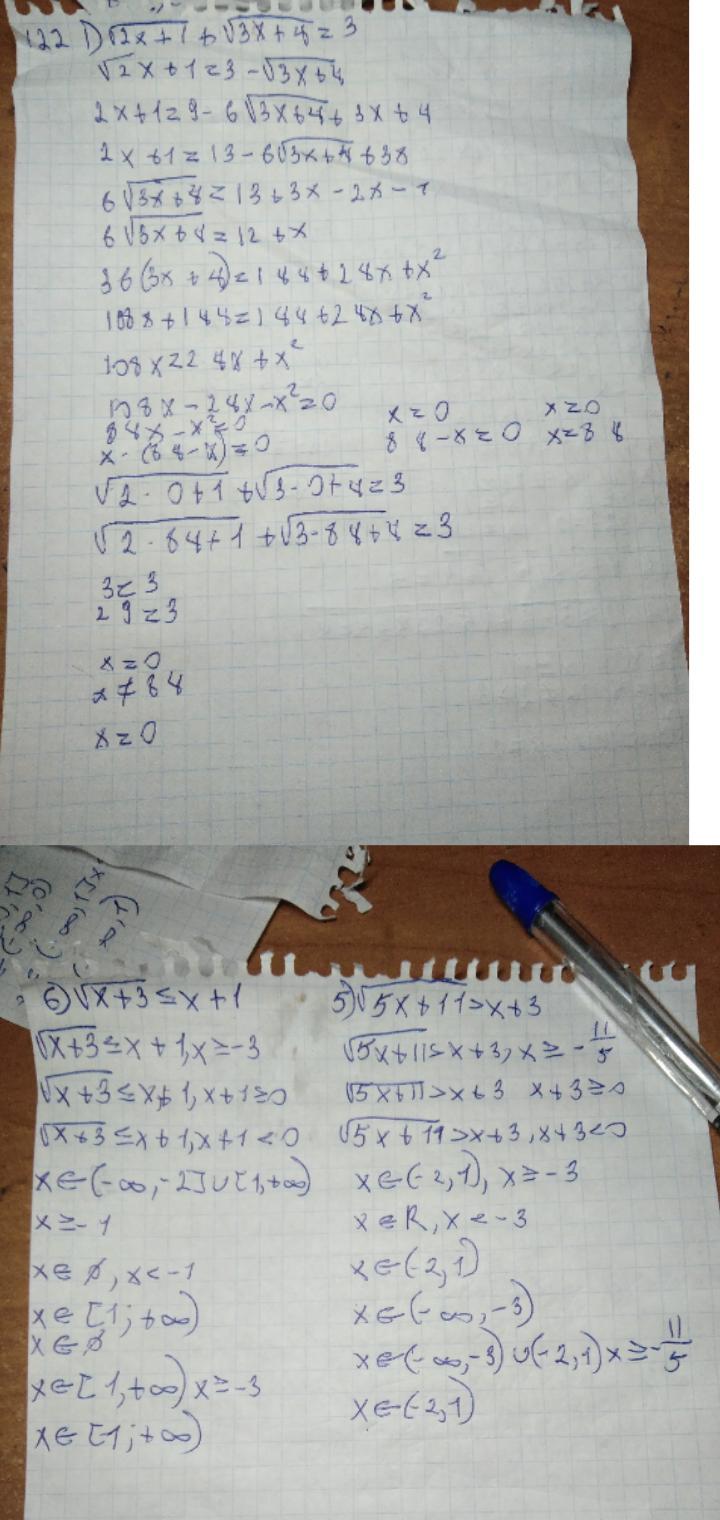 122 1) √2x+1 + √3x+4 = 3
√2x+1 = 3 - √3x+4
2x+1 = 9 - 6√3x+4 + 3x + 4
2x+1 = 13 - 6√3x+4 + 3x
6√3x+4 = 13 + 3x - 2x - 1
6√3x+4 = 12 + x
36(3x + 4) = 144 + 24x + x²
108x + 144 = 144 + 24x + x²
108x = 24x + x²
108x - 24x - x² = 0
84x - x² = 0
x · (84 - x) = 0
x = 0 x = 0
84 - x = 0 x = 84
√2 · 0 + 1 + √3 · 0 + 4 = 3
√2 · 84 + 1 + √3 · 84 + 4 = 3
3 = 3
29 = 3
x = 0
x ≠ 84
x = 0
6) √x+3 ≤ x + 1
√x+3 ≤ x + 1, x ≥ -3
√x+3 ≤ x + 1, x + 1 ≥ 0
√x+3 ≤ x + 1, x + 1 < 0
x ∈ (-∞, -2] ∪ [1, +∞)
x ≥ -1
x ∈ ∅, x < -1
x ∈ [1; +∞)
x ∈ ∅
x ∈ [1, +∞) x ≥ -3
x ∈ [1; +∞)
5) √5x+11 > x + 3
√5x+11 > x + 3, x ≥ -11/5
√5x+11 > x + 3 x + 3 ≥ 0
√5x+11 > x + 3, x + 3 < 0
x ∈ (-2, 1), x ≥ -3
x ∈ R, x < -3
x ∈ (-2, 1)
x ∈ (-∞, -3)
x ∈ (-∞, -3) ∪ (-2, 1) x ≥ -11/5
x ∈ (-2, 1)